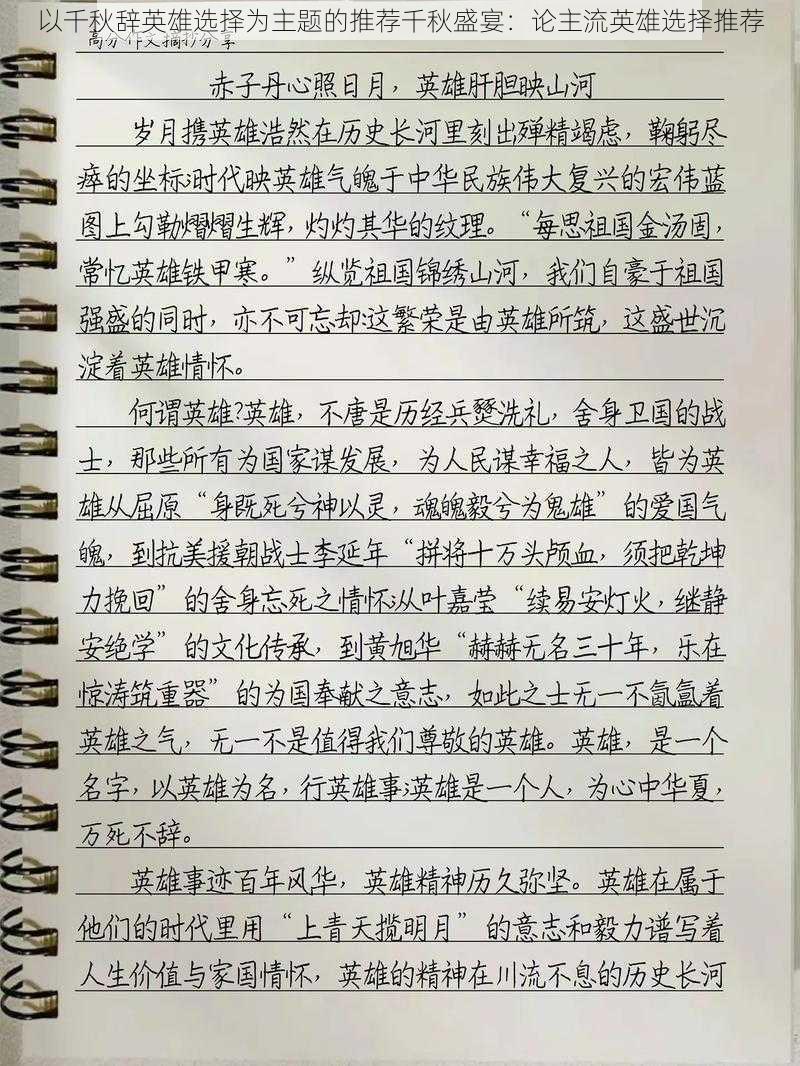 以千秋辞英雄选择为主题的推荐千秋盛宴：论主流英雄选择推荐
高分作文摘抄分享
赤子丹心照日月，英雄肝胆映山河
岁月携英雄浩然在历史长河里刻出殚精竭虑，鞠躬尽
瘁的坐标;时代映英雄气魄于中华民族伟大复兴的宏伟蓝
图上勾勒熠熠生辉，灼灼其华的纹理。“每思祖国金汤固，
常忆英雄铁甲寒。”纵览祖国锦绣山河，我们自豪于祖国
强盛的同时，亦不可忘却:这繁荣是由英雄所筑，这盛世沉
淀着英雄情怀。
何谓英雄?英雄，不唐是历经兵燹洗礼，舍身卫国的战
士，那些所有为国家谋发展，为人民谋幸福之人，皆为英
雄从屈原“身既死兮神以灵，魂魄毅兮为鬼雄”的爱国气
魄，到抗美援朝战士李延年“拼将十万头颅血，须把乾坤
力挽回”的舍身忘死之情怀;从叶嘉莹“续易安灯火，继静
安绝学”的文化传承，到黄旭华“赫赫无名三十年，乐在
惊涛筑重器”的为国奉献之意志，如此之士无一不氤氲着
英雄之气，无一不是值得我们尊敬的英雄。英雄，是一个
名字，以英雄为名，行英雄事;英雄是一个人，为心中华夏，
万死不辞。
英雄事迹百年风华，英雄精神历久弥坚。英雄在属于
他们的时代里用“上青天揽明月”的意志和毅力谱写着
人生价值与家国情怀，英雄的精神在川流不息的历史长河